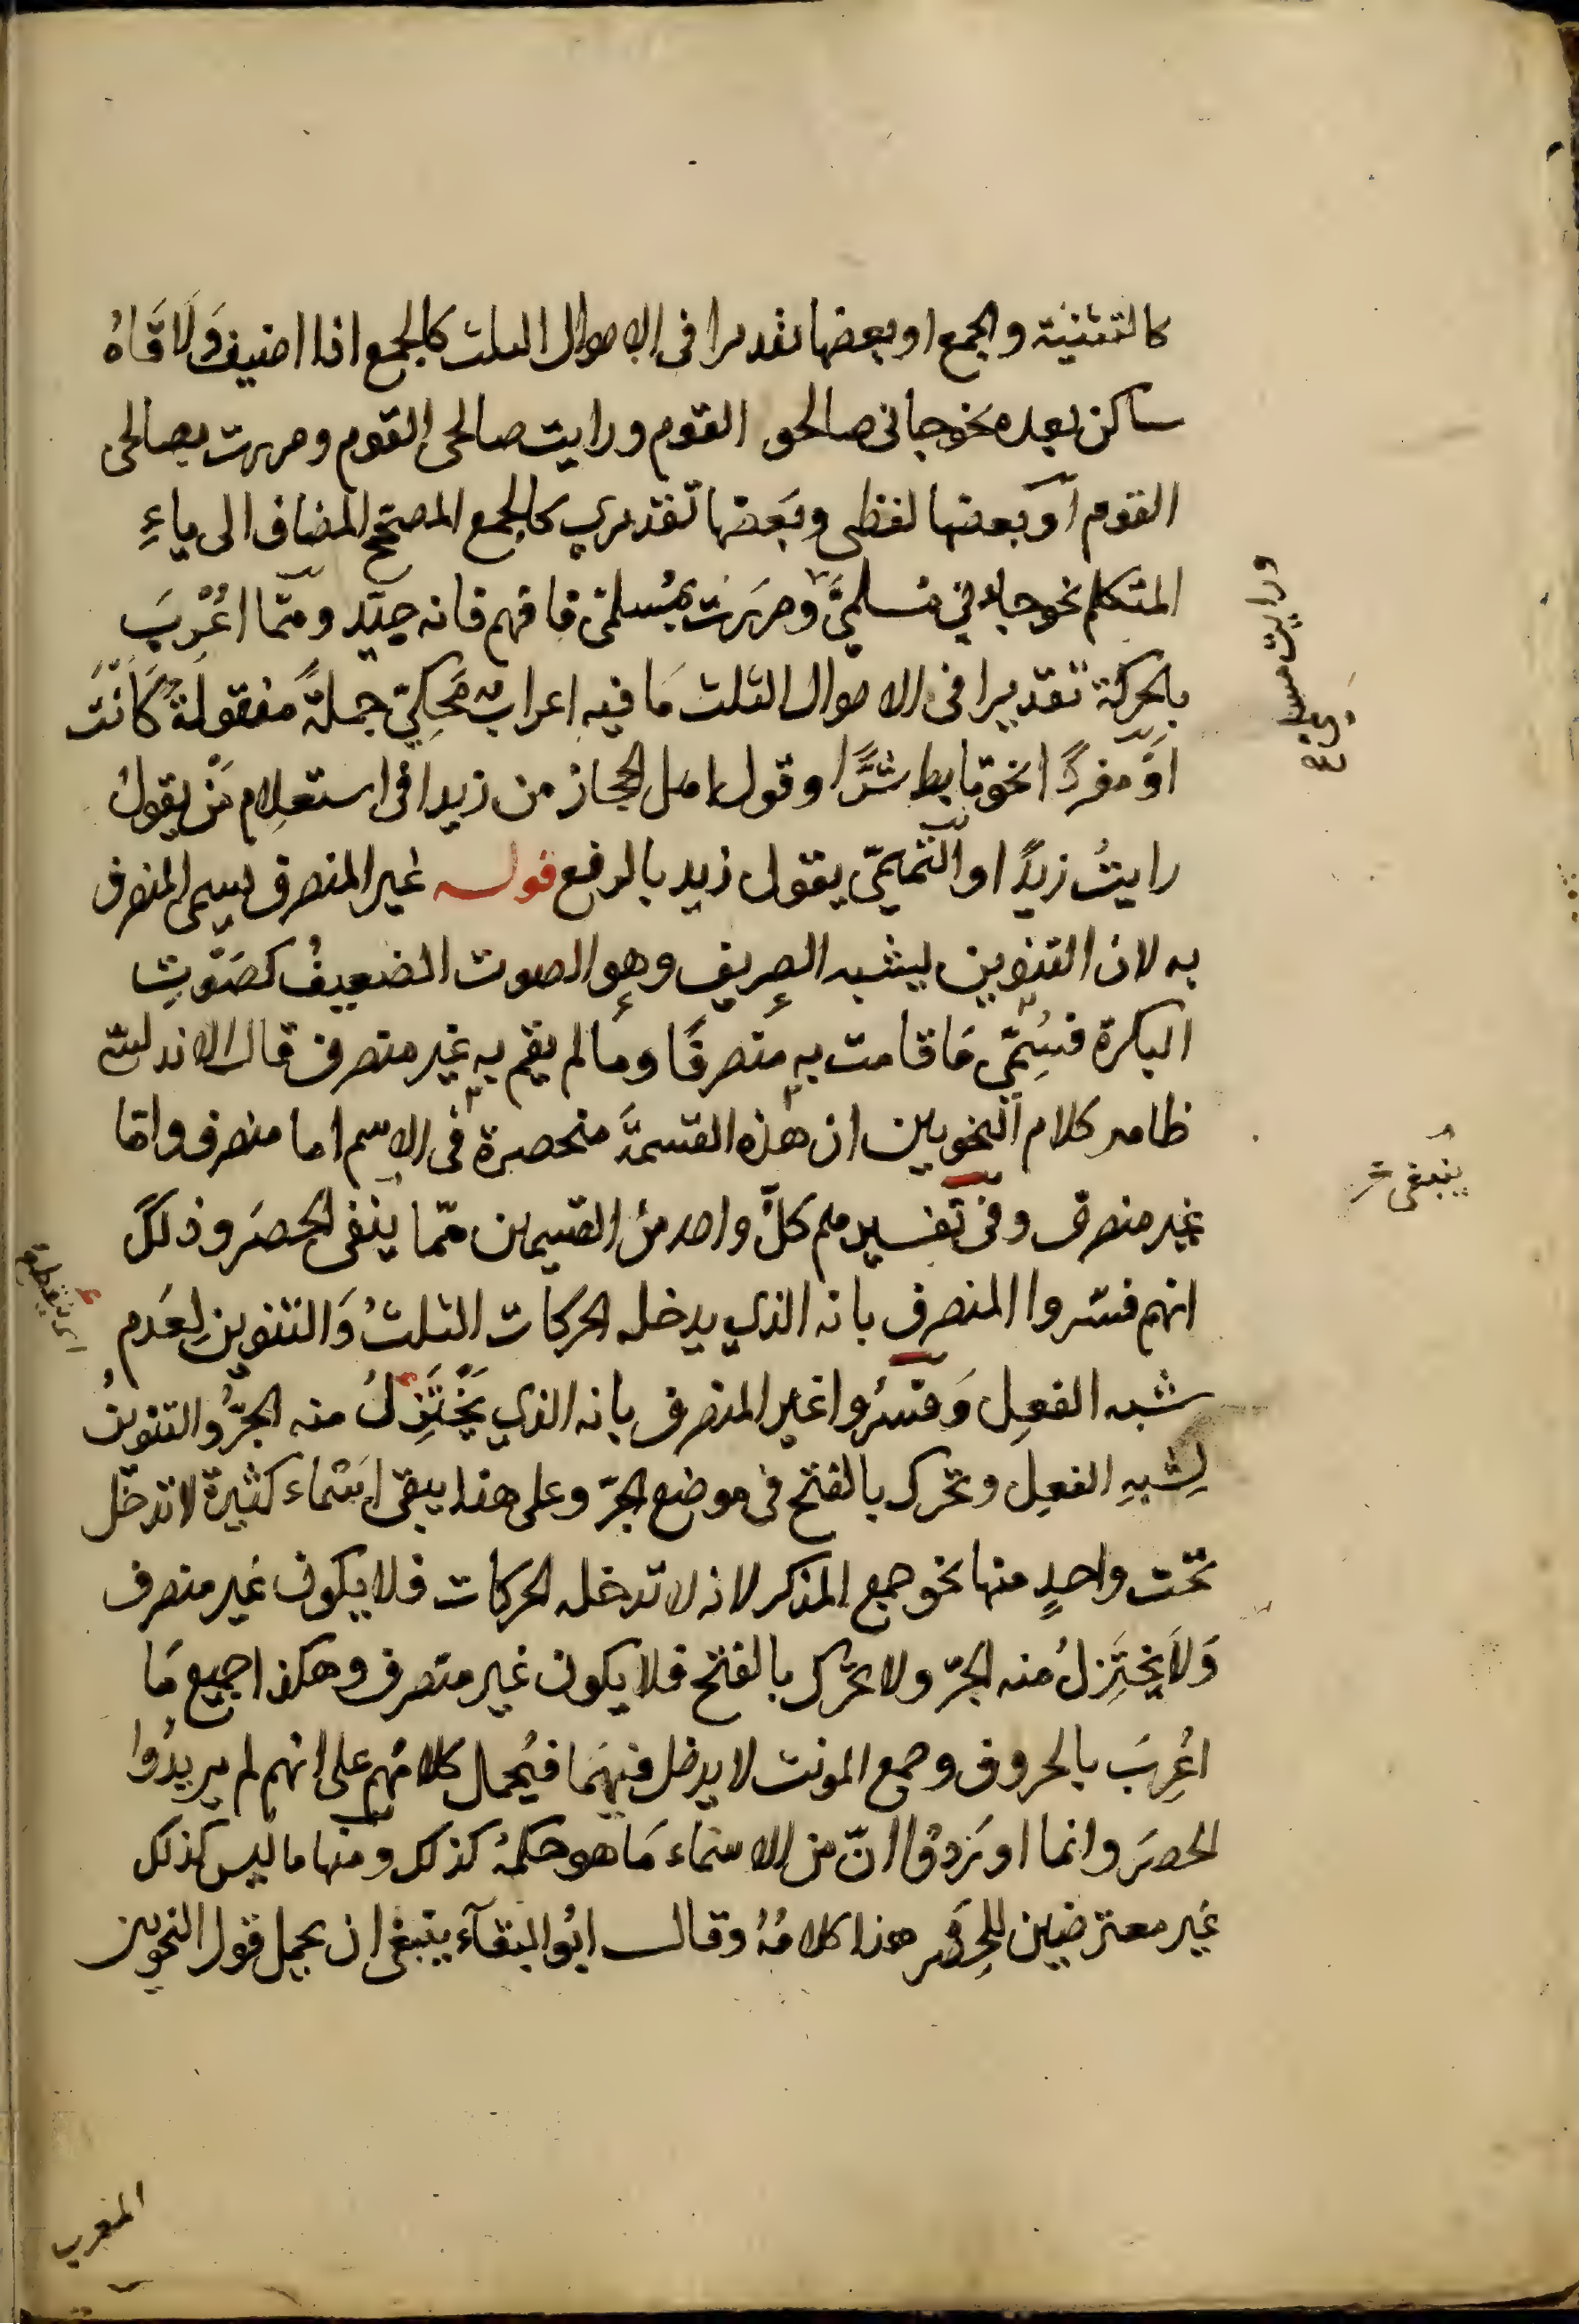 كالتثنية والجمع او بعضها تقديرا فى الاحوال الثلث كالجمع اذا اضيف وَلَاقَاهُ
ساكن بعده نحو جانى صالحو القوم ورايت صالحى القوم ومررت بصالحى
القوم اَو بعضها لفظى وبَعضها تقديرى كالجمع المصحّح المضاف الى ياءِ
المتكلم نحو جاءنى مُسلمِىَّ ومررت بمُسلمىّ فافهم فانه جيّد وممّا اُعْرِبَ
بالحركة تقديرا فى الاحوال الثلث مَا فيه اعرابٌ مَحكِىّ جملةً منقولةً كَانَتْ
اَوْ مفردًا نحو تابط شرًّا وقول اهل الحجاز من زيدا فى استعلامِ مَنْ يقولُ
رايتُ زيدًا او التميمىّ يقول زيد بالرفع قوله غير المنصرف يسمى المنصرف
به لان التنوين يشبه الصريف وهو الصوت الضعيفُ كصَوْتِ
البكرة فسُمِّىَ مَا قامت به منصرفًا وما لم يقم به غير منصرف قال الاندلسىّ
ظاهر كلام النحويين ان هذه القسمةَ منحصرة فى الاسم اما منصرف واما
غير منصرف وفى تفسيرهم كلَّ واحد من القسمين ممّا يَنفى الحصرَ وذلكَ
انهم فسّروا المنصرف بانه الذى يدخله الحركات الثلثُ وَالتنوين لِعَدم
شبه الفعِل وَفسّرُوا غير المنصرف بانه الذى يُخْتَزَلُ منه الجرُّ والتنوينُ
لِشبهِ الفعِل ويحرك بالفتح فى موضع الجرّ وعلى هذا يبقى اسَماء كثيرة لا تدخل
تحت واحدٍ منها نحو جمع المذكر لانه لا تدخله الحركات فلا يكون غير منصرف
وَلَا يختَزلُ منه الجرّ ولا يحرّك بالفتح فلا يكون غير منصرف وهكذا جميع مَا
اُعْرِبَ بالحروف وجمع المونث لا يدخل فيهَما فيُحمل كلامُهم على انهم لم يريدُوا
الحصرَ وانما اوردوا انّ من الاسمَاء مَا هو حكمهُ كذلك ومنها ما ليس كذلك
غير معترضين للحصر هذا كلامُهُ وقال ابُو البقآء ينبغى ان يحمل قول النحويين
ورايت مسلمىّ صح
ينبغى
اى ينقطع
المغرب